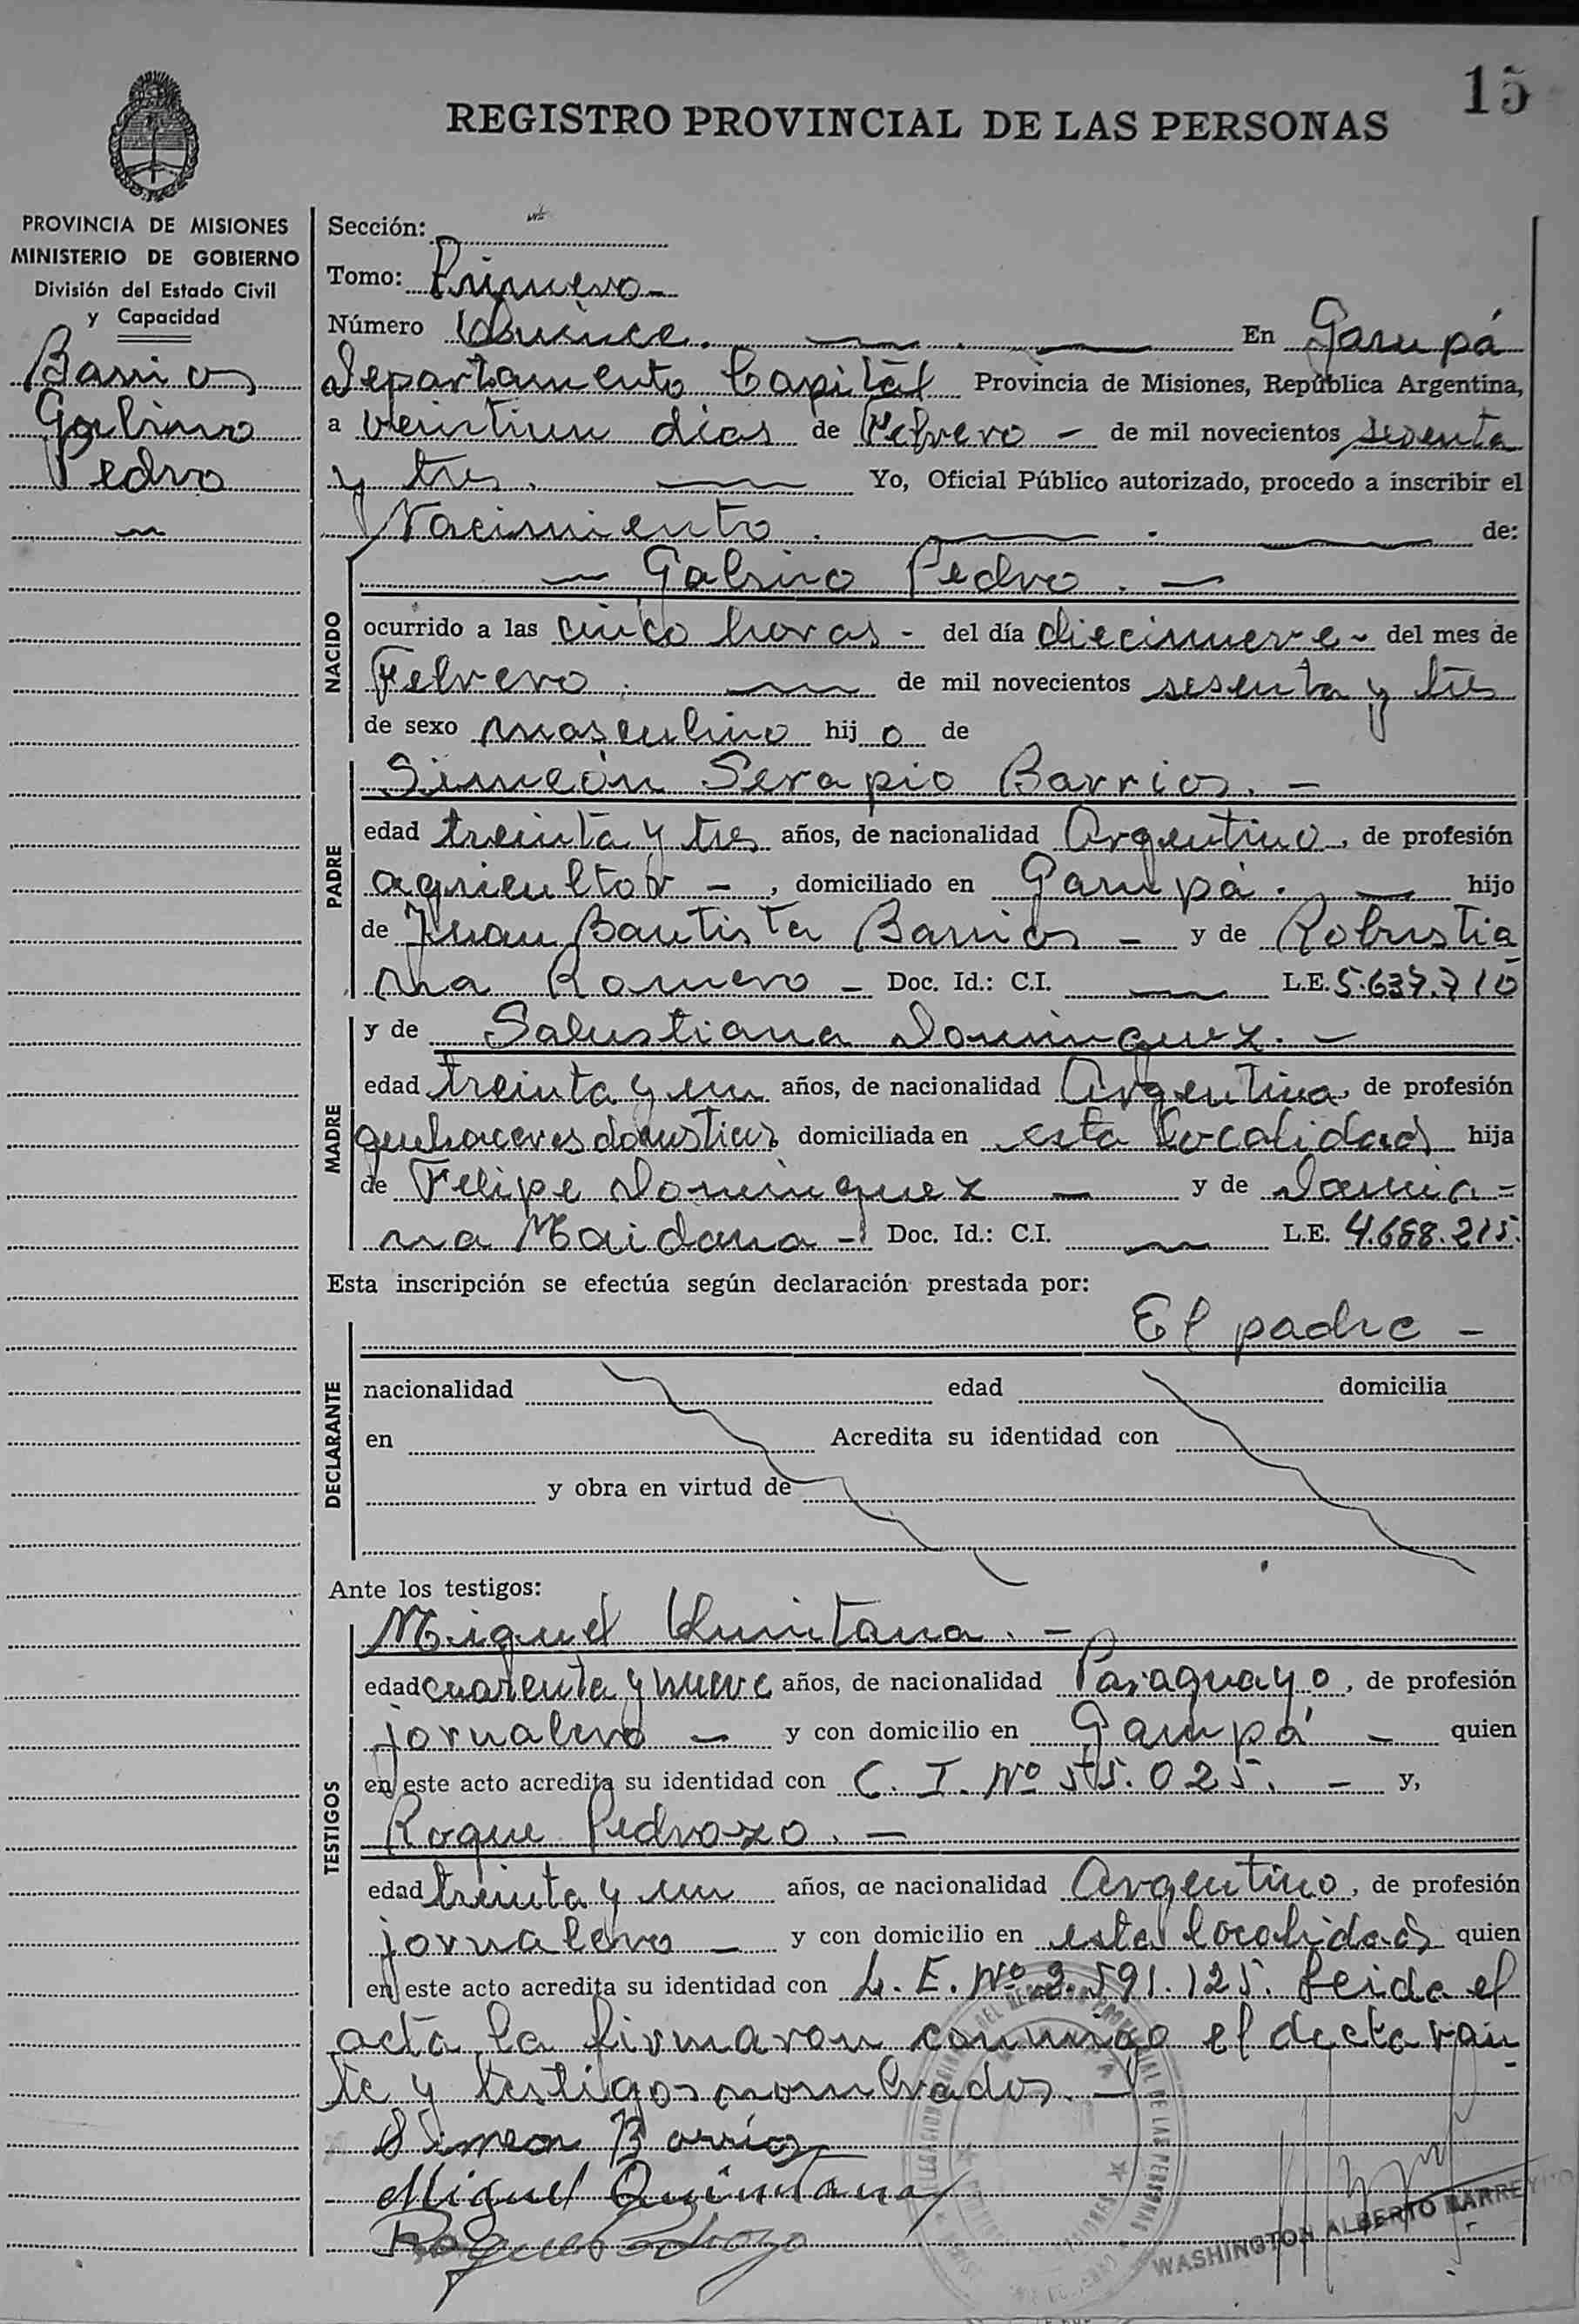 15
REGISTRO PROVINCIAL DE LAS PERSONAS
PROVINCIA DE MISIONES
MINISTERIO DE GOBIERNO
División del Estado Civil
y Capacidad
Barrios
Galvino
Pedro
Sección:
Tomo: Primero -
Número Quince. En Garupá
Departamento Capital Provincia de Misiones, República Argentina,
a veintiun dias de Febrero - de mil novecientos sesenta
y tres. Yo, Oficial Público autorizado, procedo a inscribir el
Nacimiento. de:
NACIDO
Galvino Pedro. -
ocurrido a las cinco horas - del día diecinueve - del mes de
Febrero. de mil novecientos sesenta y tres
de sexo masculino hijo de
PADRE
Simeón Serapio Barrios. -
edad treinta y tres años, de nacionalidad Argentino, de profesión
agricultor -, domiciliado en Garupá. - hijo
de Juan Bautista Barrios - y de Robustia
na Romero - Doc. Id.: C.I. L.E. 5.637.710
MADRE
y de Salustiana Dominguez. -
edad treinta y un años, de nacionalidad Argentina, de profesión
quehaceres domesticos domiciliada en esta localidad hija
de Felipe Dominguez - y de Damia-
na Maidana - Doc. Id.: C.I. L.E. 4.688.215.
Esta inscripción se efectúa según declaración prestada por:
DECLARANTE
El padre -
nacionalidad edad domicilia
en Acredita su identidad con
y obra en virtud de
Ante los testigos:
TESTIGOS
Miguel Quintana. -
edad cuarenta y nueve años, de nacionalidad Paraguayo, de profesión
jornalero - y con domicilio en Garupá - quien
en este acto acredita su identidad con C. I. Nº 55.025. - y,
Roque Pedrozo. -
edad treinta y un años, de nacionalidad Argentino, de profesión
jornalero - y con domicilio en esta localidad quien
en este acto acredita su identidad con L. E. Nº 2.591.125. Leida el
acta la firmaron conmigo el declaran
te y testigos nombrados. -
Simeon Barrios
Miguel Quintana
Roque Pedrozo
WASHINGTON ALBERTO BARREYRO